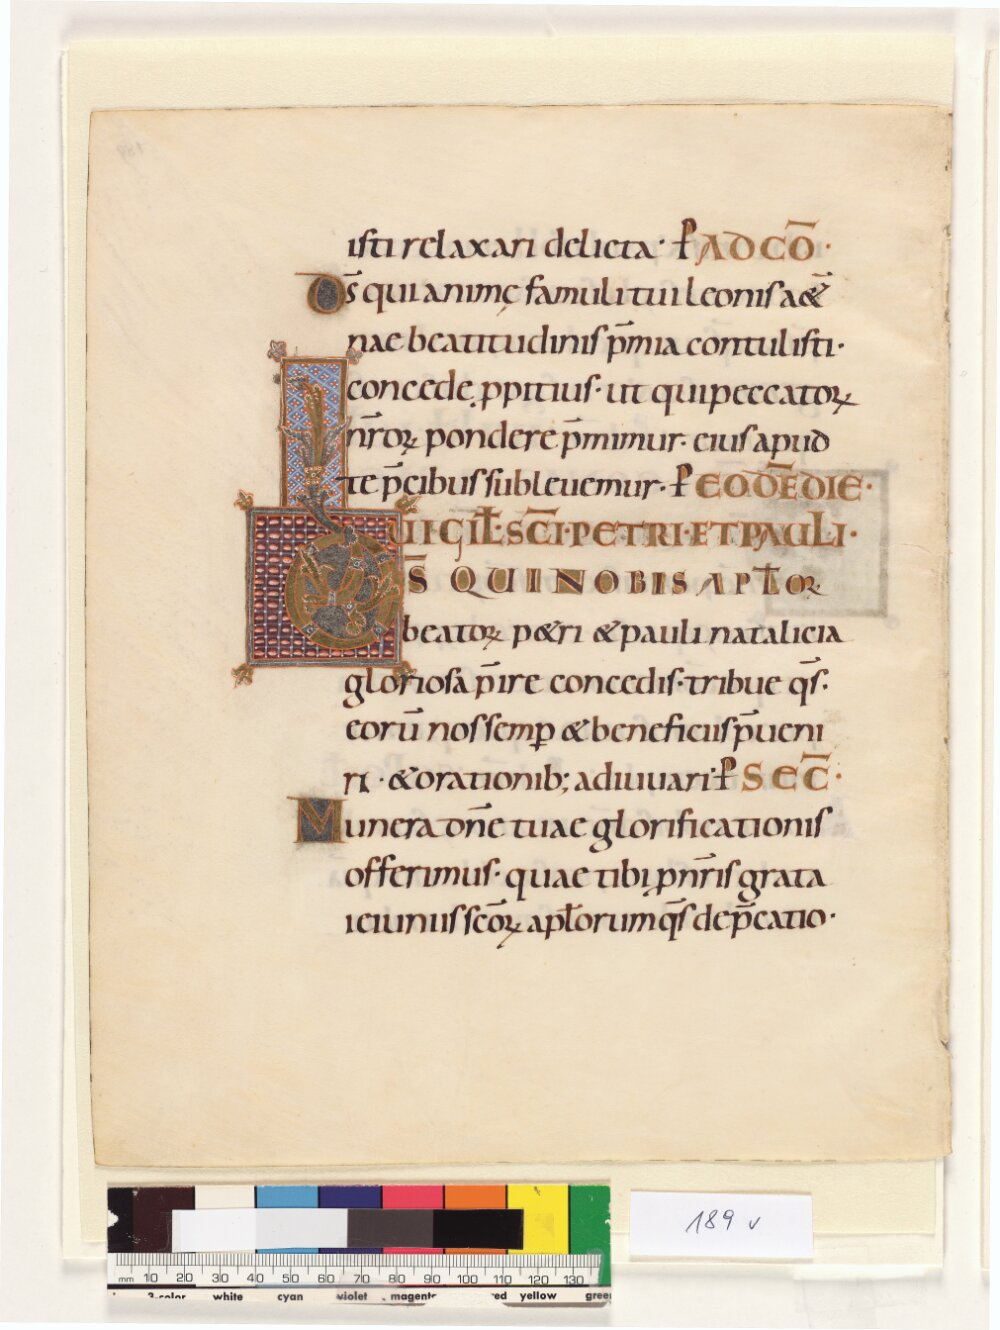 isti relaxari delicta· P̄ AD CŌ·
D̄s qui animę famuli tui leonis aet̄
nae beatitudinis p̄mia contulisti·
concede ꝓpitius· ut qui peccatoꝝ
nr̄oꝝ pondere p̄mimur· eius apud
te p̄cibus subleuemur· P̄ EODĒ DIE·
UIGIL̄· SC̄I· PETRI· ET PAULI·
D̄S QUI NOBIS APL̄OꝜ
beatoꝝ petri et pauli natalicia
gloriosa p̄ire concedis· tribue q̄s·
eorū nos semꝑ et beneficiis p̄ueni
ri· et orationib; adiuuari· P̄ SEC̄·
Munera dn̄e tuae glorificationis
offerimus· quae tibi ꝓ nr̄is grata
ieiuniis sc̄oꝝ apl̄orum q̄s dep̄catio·
189 v
mm 10 20 30 40 50 60 70 80 90 100 110 120 130
3-color white cyan violet magenta red yellow green